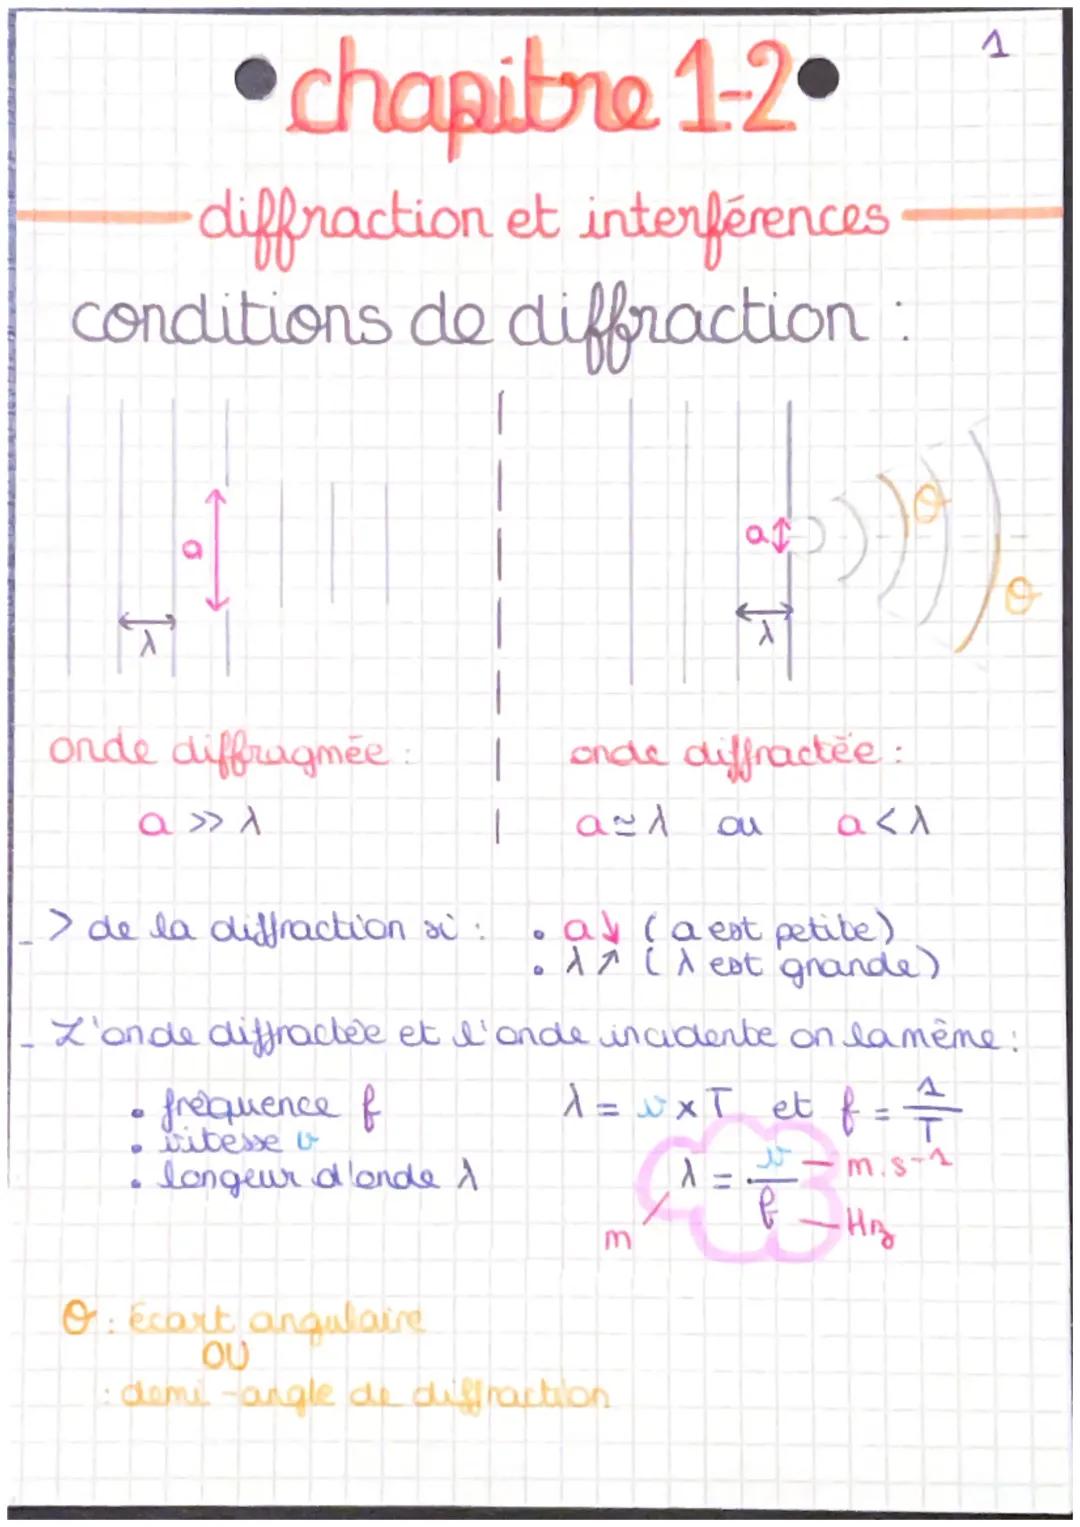 1
• chapitre 1-2 •
diffraction et interférences
conditions de diffraction :
a
λ
a
λ
θ
θ
onde diffragmée :
a >> λ
onde diffractée :
a ≃ λ ou a < λ
_> de la diffraction si : • a↓ (a est petite)
• λ↗ (λ est grande)
_ L'onde diffractée et l'onde incidente on la même :
• fréquence f
• vitesse v
• longeur d'onde λ
λ = v × T et f = 1/T
λ = v/f
m.s-1
Hz
m
θ : écart angulaire
OU
: demi-angle de diffraction